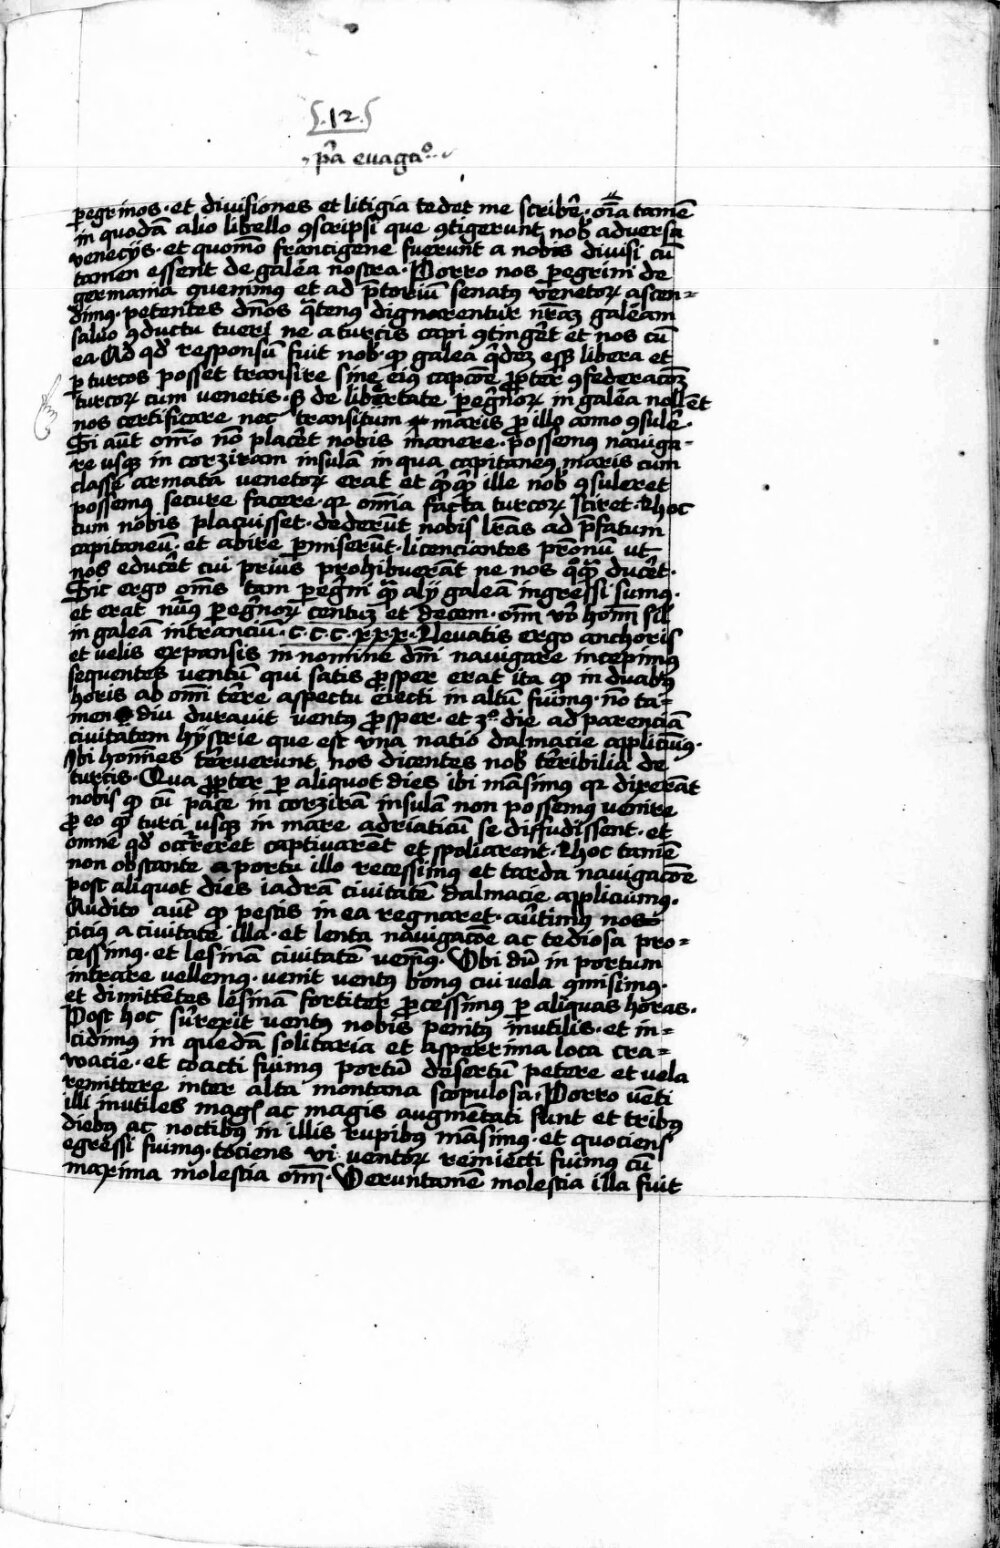 12
p̄a evagaº
peg̅nos · et divisiones et litigia tedet me scribe̅ · oi̅a tame̅
in quoda̅ alio libello ꝯscripsi que ꝯtigerunt nob̅ adversa
venecijs · et quom̅o francigene fuerunt a nobis divisi cu̅
tamen essent de galea nostra · Porro nos peregrini de
germania quemimꝰ et ad p̅toriu̅ senatꝰ venetoꝝ ascen=
dimꝰ · petentes dn̅os q̅tenꝰ dignarentur nr̅aꝫ galeam
salvo ꝯductu tueri ne a turcis capi ꝯting̅et et nos cu̅
ea · Ad qd̅ responsu̅ fuit nob̅ · ꝙ galea q̅deꝫ esꝫ libera et
ꝑ turcos posset transire sine eiꝰ capco̅e ꝓpter ꝯfederaco̅eꝫ
turcoꝝ cum venetis · ꝫ de libertate ꝑeg̅noꝝ in galea nollent
nos certificare nec transitum maris ꝓ illo anno ꝯsule̅
Si aut̅ om̅o no̅ place̅t nobis manere · possemus naviga=
re usqꝫ in corziram insula̅ in qua capitaneꝰ maris cum
classe armata venetoꝝ erat et q̅cq̅d ille nob̅ ꝯsuleret
possemꝰ secure facere · qꝛ om̅ia facta turcoꝝ sciret · Et hoc
tum nobis placuisset · dederu̅t nobis lr̅as ad p̅fatum
capitaneu̅ · et abire ꝑmiseru̅t · licenciantes p̅ronu̅ ut
nos educe̅t cui prius prohibuera̅t ne nos q̅q̅ duce̅t ·
Sic ergo om̅s tam ꝑeg̅ni q̅ alij galea̅ ingressi sumꝰ ·
et erat nu̅ꝰ ꝑeg̅noꝝ centuꝫ et decem · om̅i vo̅ hom̅ sil̅
in galea̅ intranciu̅ · c · c · c · x·x·x · Elevatis ergo anchoris
et velis expansis in nomine dn̅i navigare incepimꝰ
sequentes ventu̅ qui satis ꝓsper erat ita ꝙ in duabꝰ
horis ab om̅i te̅re aspectu eiecti in altu̅ fuimꝰ · no̅ ta=
men diu duravit ventꝰ ꝓsper · et 3º die ad parencia̅
civitatem hystrie que est una natio dalmacie applicuimꝰ ·
Ibi hom̅nes te̅rueru̅nt nos dicentes nob̅ te̅ribilia de
turcis · Qua ꝓpter ꝑ aliquot dies ibi ma̅simus qꝛ dixera̅t
nobis ꝙ cu̅ pace in corzira̅ insula̅ non possemꝰ venire
ꝓ eo ꝙ turci usqꝫ in mare adriaticu̅ se diffudissent · et
omne qd̅ occ̅reret captivare̅t et spoliarent · Et hoc tame̅
non obstante a portu illo recessimꝰ et tarda navigaco̅e
post aliquot dies iadra̅ civitate̅ dalmacie applicuimꝰ ·
Audito aut̅ ꝙ pestis in ea regnaret · av̅timꝰ nos
citiꝰ a civitate illa · et lenta navigaco̅e ac tediosa pro=
cessimꝰ · et lesina̅ civitate̅ venimꝰ · Ubi du̅ in portum
intrare vellemꝰ · venit ventꝰ bonꝰ cui vela ꝯmisimꝰ ·
et dimitte̅tes lesina̅ fortiter ꝓcessimꝰ ꝑ aliquas horas ·
Post hoc su̅rexit ventꝰ nobis penitꝰ inutilis · et in=
cidimꝰ in queda̅ solitaria et asperrima loca cra=
wacie · et coacti fuimꝰ portu̅ desertu̅ petere et vela
remittere inter alta montana scopulosa · Porro ve̅ti
illi inutiles mag̅ ac magis augme̅tati sunt et tribꝰ
diebꝰ ac noctibꝰ in illis rupibꝰ ma̅simꝰ · et quociens
egressi fuimꝰ · tociens vi ventoꝝ reiniecti fuimꝰ cu̅
maxima molestia om̅i · Verumtame̅ molestia illa fuit